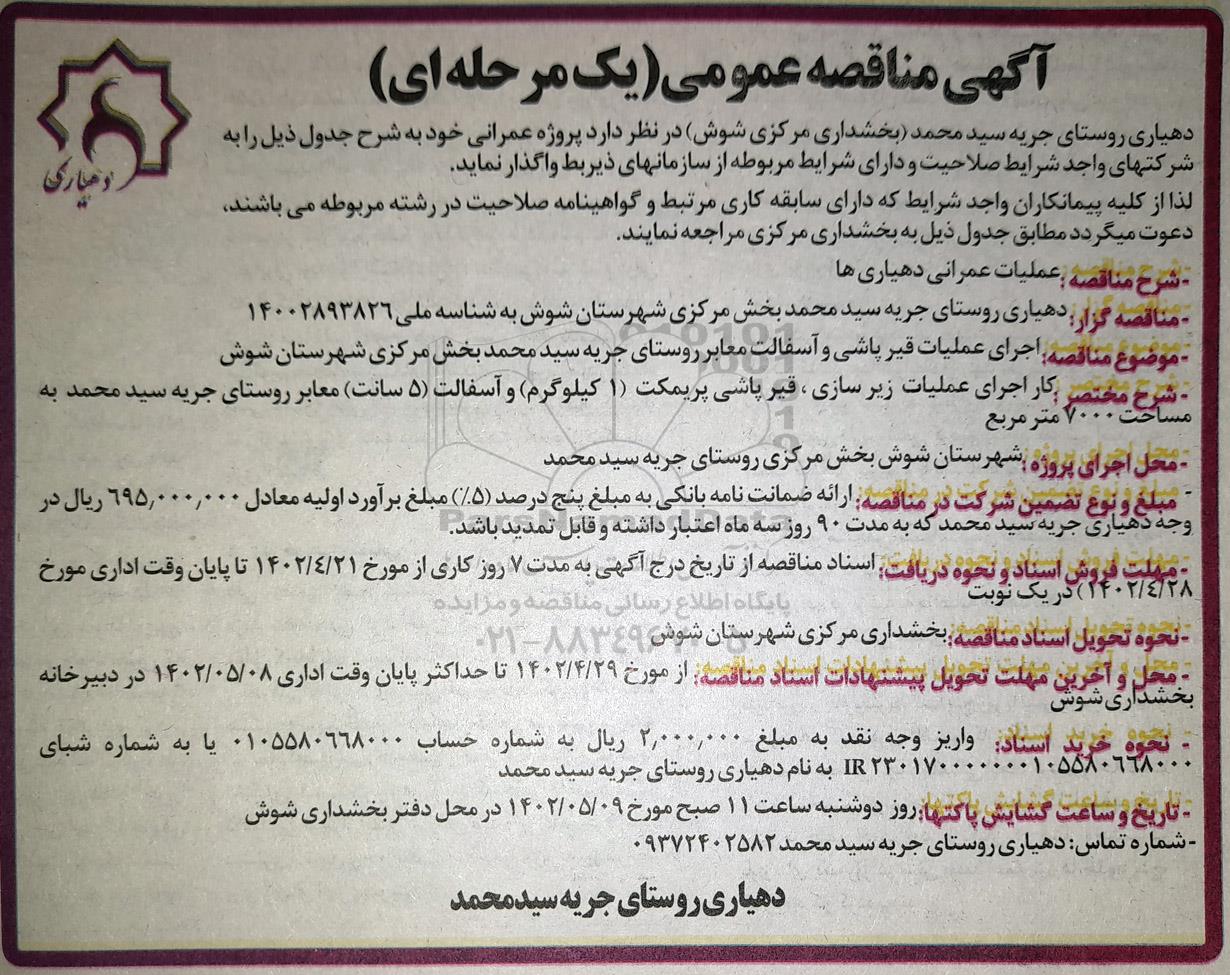 آگهی مناقصه عمومی(یک مرحله ای)
دهیاری
دهیاری روستای جریه سید محمد (بخشداری مرکزی شوش) در نظر دارد پروژه عمرانی خود به شرح جدول ذیل را به
شرکتهای واجد شرایط صلاحیت و دارای شرایط مربوطه از سازمانهای ذیربط واگذار نماید.
لذا از کلیه پیمانکاران واجد شرایط که دارای سابقه کاری مرتبط و گواهینامه صلاحیت در رشته مربوطه می باشند،
دعوت میگردد مطابق جدول ذیل به بخشداری مرکزی مراجعه نمایند.
-شرح مناقصه: عملیات عمرانی دهیاری ها
-مناقصه گزار: دهیاری روستای جریه سید محمد بخش مرکزی شهرستان شوش به شناسه ملی ۱۴۰۰۲۸۹۳۸۲۶
-موضوع مناقصه: اجرای عملیات قیر پاشی و آسفالت معابر روستای جریه سید محمد بخش مرکزی شهرستان شوش
-شرح مختصر: کار اجرای عملیات زیر سازی ، قیر پاشی پریمکت (۱ کیلوگرم) و آسفالت (۵ سانت) معابر روستای جریه سید محمد به
مساحت ۷۰۰۰ متر مربع
-محل اجرای پروژه: شهرستان شوش بخش مرکزی روستای جریه سید محمد
- مبلغ و نوع تضمین شرکت در مناقصه: ارائه ضمانت نامه بانکی به مبلغ پنج درصد (۵٪) مبلغ برآورد اولیه معادل ۶۹۵,۰۰۰,۰۰۰ ریال در
وجه دهیاری جریه سید محمد که به مدت ۹۰ روز سه ماه اعتبار داشته و قابل تمدید باشد.
-مهلت فروش اسناد و نحوه دریافت: اسناد مناقصه از تاریخ درج آگهی به مدت ۷ روز کاری از مورخ ۱۴۰۲/٤/۲۱ تا پایان وقت اداری مورخ
۱۴۰۲/٤/۲۸) در یک نوبت
-نحوه تحویل اسناد مناقصه: بخشداری مرکزی شهرستان شوش
- محل و آخرین مهلت تحویل پیشنهادات اسناد مناقصه: از مورخ ۱۴۰۲/۴/۲۹ تا حداکثر پایان وقت اداری ۱۴۰۲/۰۵/۰۸ در دبیرخانه
بخشداری شوش
- نحوه خرید اسناد: واریز وجه نقد به مبلغ ۲,۰۰۰,۰۰۰ ریال به شماره حساب ۰۱۰۵۵۸۰۶۶۸۰۰۰ یا به شماره شبای
IR ۲۳۰۱۷۰۰۰۰۰۰۰۰۱۰۵۵۸۰۶۶۸۰۰۰ به نام دهیاری روستای جریه سید محمد
- تاریخ و ساعت گشایش پاکتها: روز دوشنبه ساعت ۱۱ صبح مورخ ۱۴۰۲/۰۵/۰۹ در محل دفتر بخشداری شوش
-شماره تماس: دهیاری روستای جریه سید محمد ۰۹۳۷۲۴۰۲۵۸۲
دهیاری روستای جریه سیدمحمد
پایگاه اطلاع رسانی مناقصه و مزایده